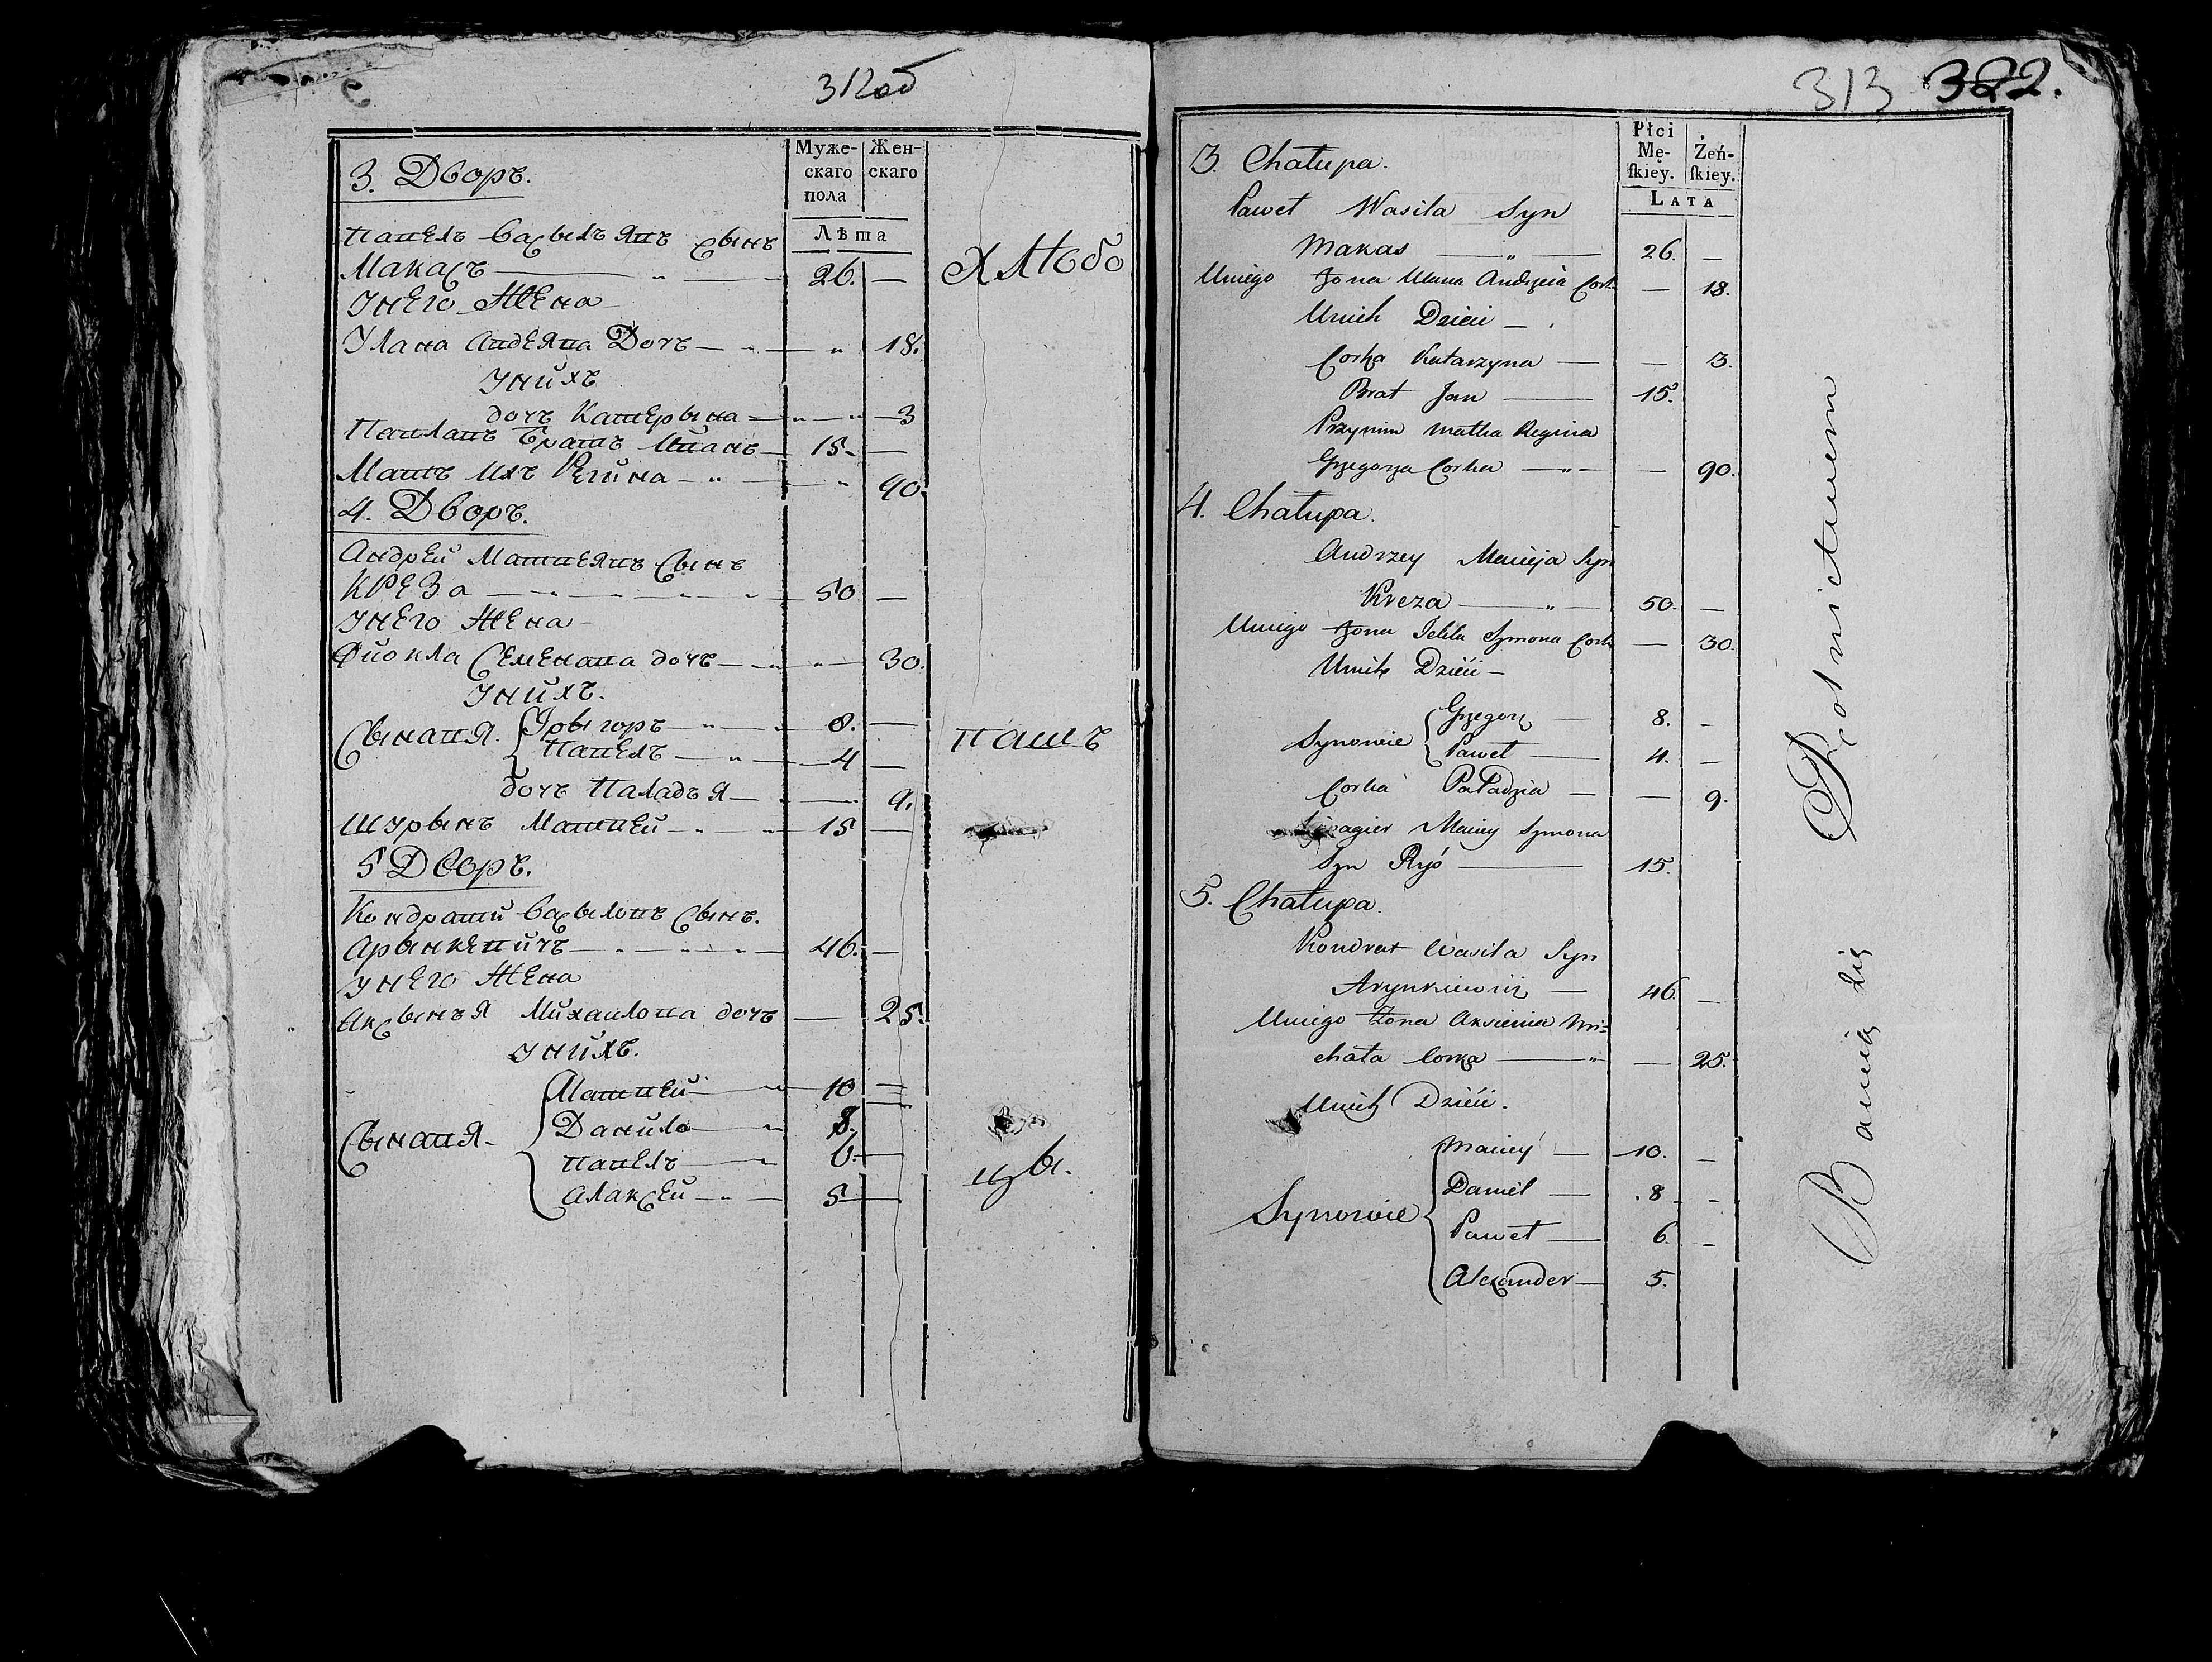 312об
Муже-
скаго
пола
Жен-
скаго
Лѣта
3. Дворъ.
Павелъ Васывъянъ Сынъ
Макасъ — „ — 26. —
Унего Жена
Улана Андеява Дочъ — „ — „ 18.
Унихъ
дочъ Катерына — „ — „ — 3
Павлавъ Братъ Иванъ — 15 — —
Матъ Ихъ Регина — „ — „ 90.
4. Дворъ.
Андрей Матвеявъ Сынъ
КРЕЗа — „ — „ — „ — 50 —
Унего Жена —
Фиокла Семенава дочъ — „ — „ — 30.
Унихъ.
Сынавя { Грыгоръ — „ — „ 8. —
Павелъ — „ — 4 —
дочъ Паладъя — „ — „ 9.
Шурынъ Матвей — „ — „ 15 —
5 Дворъ.
Кондратй Васылевъ Сынъ.
Арынкевичъ — „ — „ — 46. —
Унего Жена
Аксынъя Михаилова дочъ — 25.
Унихъ.
Сынавя — { Матвей — „ 10 —
Данила — „ 8.
Павелъ — „ 6. —
Алаксей — „ — 5 —
Хлѣбо
паш ъ
цы.
313 322.
Płci
Mę-
ſkiey.
Żeń-
ſkiey.
LATA
3. Chałupa.
Paweł Wasila Syn
Makas — „ — 26. —
Uniego Żona Ulana Andrzeia Cork — 18.
Unich Dzieci —
Corka Katarzyna — — 3.
Brat Jan — 15.
Przynim Matka Regina
Grzegorza Corka — „ — — 90.
4. Chałupa.
Andrzey Macieja Syn
Kreza — „ — 50. —
Uniego Żona Tekla Symona Cork — 30.
Unich Dzieci —
Synowie { Grzegorz — 8. —
Paweł — 4. —
Corka Paładzia — — 9.
Maciey Symona
Syn Ryś — 15.
5. Chałupa.
Kondrat Wasila Syn
Arynkiewicz — 46. —
Uniego Żona Aksienia Mi=
chała Corka — „ — 25.
Unich Dzieci.
Synowie { Maciey — 10. —
Daniel — 8 —
Paweł — 6. —
Alexander — 5.
Bawią się Rolnictwem